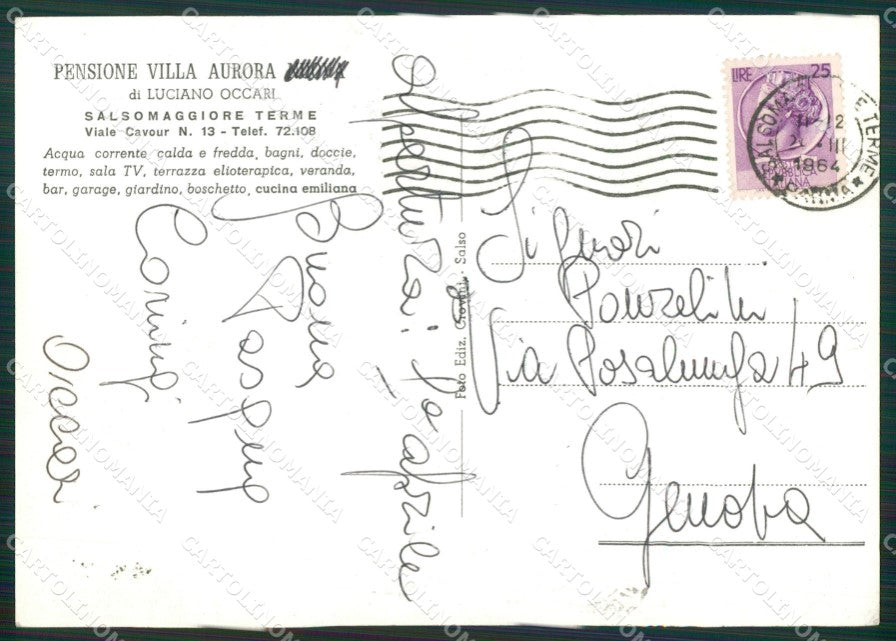 PENSIONE VILLA AURORA
di LUCIANO OCCARI
SALSOMAGGIORE TERME
Viale Cavour N. 13 - Telef. 72.108
Acqua corrente calda e fredda, bagni, doccie,
termo, sala TV, terrazza elioterapica, veranda,
bar, garage, giardino, boschetto, cucina emiliana
Apertura: 1° aprile
Buona
Pasqua
Occari
Foto Ediz. Giovini - Salso
LIRE 25
SALSOMAGGIORE TERME
1964
Signori
Via Rosalunga 49
Genova
CARTOLINOMANIA